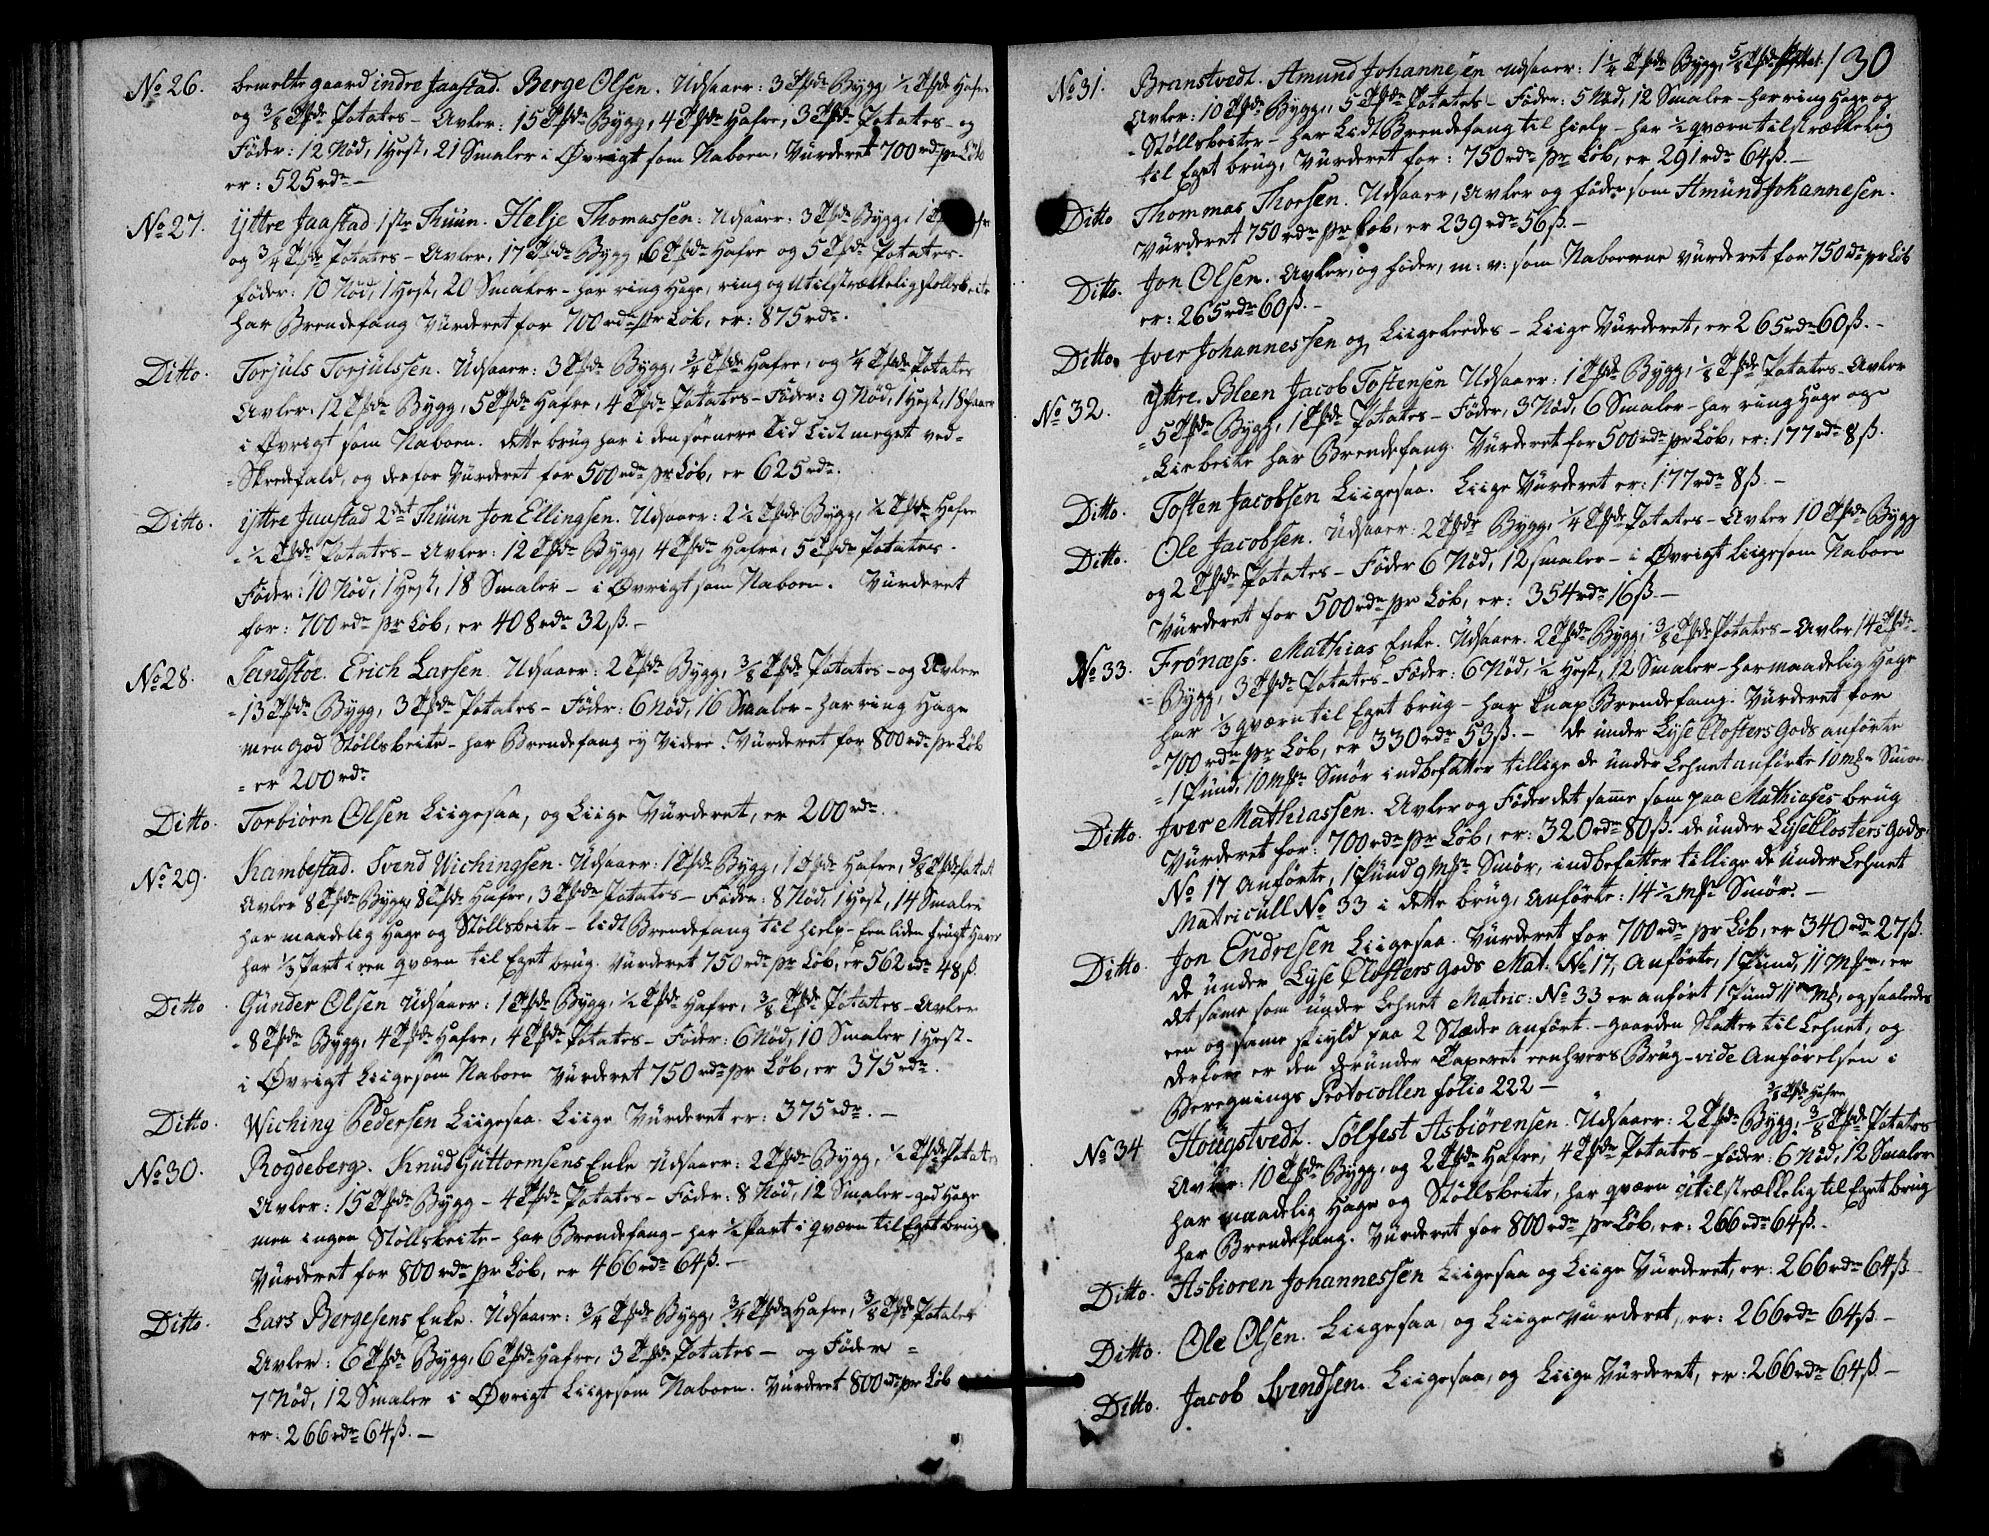 No 26. bemelte gaard indre Jaastad. Berge Olsen. Udsaaer: 3 Tpde Bygg, ½ Tpde Hafre
og 3/8 Tpde Potates – Avler: 15 Tpde Bygg, 4 Tpde Hafre, 3 Tpde Potates – og
Føder: 12 Nød, 1 Hest, 21 Smaler i Øvrigt som Naboen, Vürderet 700 rdr pr Løb
er: 525 rdr –
No 27. Ÿttre Jaastad 1ste Thüün. Helje Thomassen: Udsaaer: 3 Tpde Bygg, 1
og ¾ Tpde Potates – Avler, 17 Tpde Bygg, 6 Tpde Hafre og 5 Tpde Potates.
føder: 10 Nød, 1 Hest, 20 Smaler – har ring Hage, ring og utilstrækkelig stollsbeite
har Brendefang Vürderet for 700 rdr pr Løb, er: 875 rdr.
Ditto. Torjüls Torjülssen. Udsaaer: 3 Tpde Bygg, ¾ Tpde Hafre, og ¼ Tpde Potates
Avler: 12 Tpde Bygg, 5 Tpde Hafre, 4 Tpde Potates – Føder: 9 Nød, 1 Hest, 18
i Øvrigt som Naboen. dette brüg har i den seenere Tid Lidt meget ved=
=Skredefald, og derfor Vürderet for 500 rdr pr Løb, er 625 rdr.
Ditto. Ÿttre Jaastad 2det Thüün Jon Ellingsen. Udsaaer: 2½ Tpde Bygg, ½ Tpde Hafre
=½ Tpde Potates – Avler: 12 Tpde Bygg, 4 Tpde Hafre, 5 Tpde Potates.
Føder: 10 Nød, 1 Hest, 18 Smaler – i Øvrigt som Naboen. Vürderet
for: 700 rdr pr Løb, er 408 rdr 32 ß. –
No 28. Sandstøe. Erich Larsen. Udsaaer: 2 Tpde Bygg, 3/8 Tpde Potates – og Avler
=13 Tpde Bygg, 3 Tpde Potates – Føder: 6 Nød, 16 Smaler – har ring Hage
men god Støllsbeite – har Brendefang ey Videre. Vürderet for 800 rdr pr Løb
= er 200 rdr
Ditto. Torbiørn Olsen Liigesaa, og Liige Vürderet, er 200 rdr.
No 29. Kambestad. Svend Wichingsen. Udsaaer: 1 Tpde Bygg, 1 Tpde Hafre, 3/8 Tpde Potat
Avler 8 Tpde Bygg, 8 Tpde Hafre, 3 Tpde Potates – Føder: 8 Nød, 1 Hest, 14 Smaler
har maadelig Hage og Støllsbeite – lidt Brendefang til hielp – Een liden frügt Have
har ⅓ Part i een qværn til Eget brüg. Vürderet 750 rdr pr Løb, er 562 rdr 48 ß.
Ditto Günder Olsen Udsaaer: 1 Tpde Bygg, ½ Tpde Hafre, 3/8 Tpde Potates – Avler
=8 Tpde Bygg, 4 Tpde Hafre, 4 Tpde Potates – Føder: 6 Nød, 10 Smaler 1 Hest –
i Øvrigt Liigesom Naboen Vürderet 750 rdr pr Løb, er 375 rdr.
Ditto. Wiching Pedersen Liigesaa. Liige Vürderet er: 375 rdr. –
No 30. Rogdeberg. Knüd Güttormsens Enke Udsaaer: 2 Tpde Bygg, ½ Tpde Potates
Avler: 15 Tpde Bygg – 4 Tpde Potates – Føder: 8 Nød, 12 Smaler – god Hage
men ingen Støllsbeite – har Brendefang – har ½ Part i qværn til Eget brüg
Vürderet for 800 rdr pr Løb, er 466 rdr 64 ß. –
Ditto. Lars Bergesens Enke. Udsaaer: ¾ Tpde Bygg, ¾ Tpde Hafre, 3/8 Tpde Potates
Avler: 6 Tpde Bygg, 6 Tpde Hafre, 3 Tpde Potates – og Føder =
7 Nød, 12 Smaler i Øvrigt Liigesom Naboen. Vürderet 800 rdr pr Løb
er: 266 rdr 64 ß. –
130
No 31. Branstvedt. Amund Johannesen Udsaaer: 1¼ Tpde Bygg, 5/8 Tpde
Avler: 10 Tpde Bygg, 5 Tpde Potates – Føder: 5 Nød, 12 Smaler – har ring Hage og
=Støllsbeiter – har Lidt Brendefang til hielp – har ½ qværn tilstrækkelig
til Eget brüg, Vürderet for: 750 rdr pr Løb, er 291 rdr 64 ß. –
Ditto Thommas Thoesen. Udsaaer, Avler og føder som Amünd Johannesen.
Vürderet 750 rdr pr Løb, er 239 rdr 56 ß. –
Ditto. Jon Olsen. Avler, og føder, m: v: som Naboerne Vürderet for 750 rdr pr Løb
er: 265 rdr 60 ß. –
Ditto. Iver Johannessen og, Liigeleedes – Liige Vürderet, er 265 rdr 60 ß. –
No 32. Ÿttre. Bleen Jacob Tostensen Udsaaer: 1 Tpde Bygg, 1/8 Tpde Potates – Avler
=5 Tpde Bygg, 1 Tpde Potates – Føder, 3 Nød, 6 Smaler – har ring Hage og=
=Liebeite har Brendefang. Vürderet for 500 rdr pr Løb, er: 177 rdr 8 ß.
Ditto. Tosten Jacobsen Liigesaa. Liige Vürderet er: 177 rdr 8 ß. –
Ditto. Ole Jacobsen. Udsaaer: 2 Tpde Bygg, ¼ Tpde Potates – Avler 10 Tpde Bygg
og 2 Tpde Potates – Føder 6 Nød, 12 smaler – i Øvrigt Liigesom Naboen
Vürderet for 500 rdr pr Løb, er: 354 rdr 16 ß. –
No 33. Frønæss. Mathias Enke. Udsaaer. 2 Tpde Bygg, 3/8 Tpde Potates – Avler 14 Tpde
=Bygg, 3 Tpde Potates – Føder: 6 Nød, ½ Hest, 12 Smaler – har maadelig Hage
har ⅓ qværn til Eget brüg – har Knap Brendefang. Vürderet for
=700 rdr pr Løb, er 330 rdr 53 ß. – de ünder Lyse Closters Gods anførte
=1 Pünd, 10 mrkr Smør indbefatter tillige de ünder Lehnet anførte 10 mrkr Smør
Ditto. Iver Mathiassen. Avler og Føder det samme som paa Mathiases brüg
Vürderet for: 700 rdr pr Løb, er: 320 rdr 80 ß. de ünder Lyse Closters Gods
No 17 Anførte, 1 Pünd 9 Mrkr Smør, indbefatter tillige de ünder Lehnet
Matricüll No 33 i dette brüg, Anførte: 14½ Mrkr Smør. –
Ditto. Jon Endresen Liigesaa. Vürderet for 700 rdr pr Løb, er 340 rdr 27 ß.
de ünder Lyse Closters Gods Mat: No 17, Anførte, 1 Pünd, 11 Mrkr, er
det same som ünder Lehnet Matric: No 33 er anført 1 Pünd 11 Mrkr, og saaledes
een og same skyld paa 2 Stæder anført. – gaarden Skatter til Lehnet, og
derfor er den deründer Taxeret eenhvers Brüg – vide Anførelsen i
Beregnings Protocollen folio 222 –
No 34 Hougstvedt. Sølfest Asbiørensen. Udsaaer: 2 Tpde Bygg, 3/8 Tpde Hafre 3/8 Tpde Potates
Avler: 10 Tpde Bygg, og 2 Tpde Hafre, 4 Tpde Potates – føder: 6 Nød, 12 Smaler
har maadelig Hage og Støllsbeite, har qværn ütilstrækkelig til Eget brüg
har Brendefang. Vürderet for 800 rdr pr Løb, er: 266 rdr 64 ß. –
Ditto. Asbioren Johannessen Liigesaa og Liige Vürderet, er: 266 rdr 64 ß
Ditto. Ole Olsen. Liigesaa, og Liige Vürderet, er: 266 rdr 64 ß. –
Ditto. Jacob Svendsen. Liigesaa, og Liige Vürderet, er: 266 rdr 64 ß –